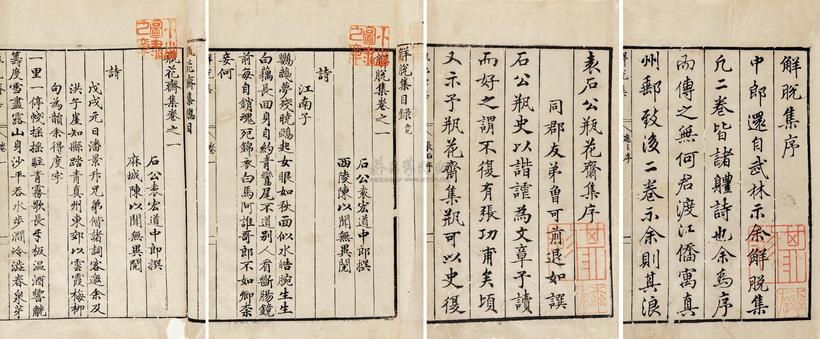 解脫集序
中郎還自武林示余解脫集
凢二卷皆諸體詩也余為序
而傳之無何君渡江僑寓真
州郵致後二卷示余則其浪
袁石公瓶花齋集序
同郡友弟魯可前退如譔
石公瓶史以諧謔為文章予讀
而好之謂不復有張功甫矣頃
又示予瓶花齋集瓶可以史復
解脫集目錄完
解脫集卷之一
石公袁宏道中郎撰
西陵陳以聞無異閱
詩
江南子
鸚鵡夢殘曉鵶起女眼如秋面似水皓腕生生
白藕長回身自約青鸞尾不道別人看斷腸鏡
前每自銷魂死錦衣白馬阿誰哥郎不如卿奈
妾何
瓶花齋集總目
瓶花齋集卷之一
石公袁宏道中郎撰
麻城陳以聞無異閱
詩
戊戌元日潘景升兄弟偕諸詞客邀余及
洪子崖知縣踏青真州東郊以雲霞梅柳
句為韻余得度字
一里一停橈搖搖駐青霧歌長牙板溫酒警觥
籌度雪盡露山身沙平吞水步澗冷澁春泉